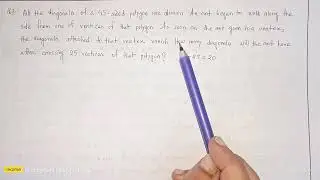 Q: All the diagonals of a 45-sided polygon are drawn. An ant began to walk along the
side from one of vertices of that polygon. As soon as the ant goes to a vertices,
the diagonals attached to that vertex vanish. How many diagonals will the ant have
after crossing 25 vertices of that polygon? = 20